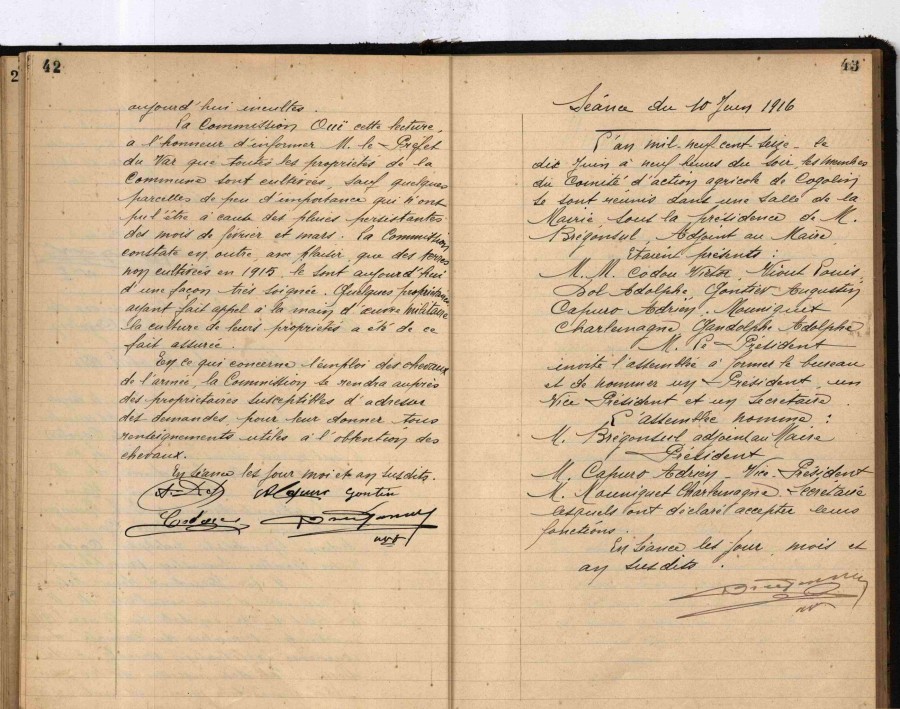 2
42
aujourd'hui incultes.
La Commission Ouï cette lecture,
a l'honneur d'informer M. le Préfet
du Var que toutes les propriétés de la
Commune sont cultivées, sauf quelques
parcelles de peu d'importance qui n'ont
pu l'être à cause des pluies persistantes
des mois de février et mars. La Commission
constate en outre, avec plaisir, que des terres
non cultivées en 1915, le sont aujourd'hui
d'une façon très soignée. Quelques propriétaires
ayant fait appel à la main d'œuvre militaire
la culture de leurs propriétés a été de ce
fait assurée.
En ce qui concerne l'emploi des chevaux
de l'armée, la Commission se rendra auprès
des propriétaires susceptibles d'adresser
des demandes pour leur donner tous
renseignements utiles à l'obtention des
chevaux.
En séance les jour moi et an susdits.
43
Séance du 10 Juin 1916
L'an mil neuf cent seize le
dix Juin à neuf heures du soir les membres
du Comité d'action agricole de Cogolin
se sont réunis dans une salle de la
Mairie sous la présidence de M.
Brégonsul, Adjoint au Maire
Etaient présents :
M. M. Codou Victor, Louis
Dol Adolphe Gontier Augustin
Capuro Adrien, Mouniguet
Charlemagne, Gandolphe Adolphe
M. Le Président
invite l'assemblée à former le bureau
et de nommer un Président, un
Vice Président et un Secretaire.
L'assemblée nomme :
M. Brégonsul adjoint au Maire
Président
M. Capuro Adrien, Vice-Président
M. Mouniguet Charlemagne Secrétaire
lesquels ont déclaré accepter leurs
fonctions.
En séance les jour, mois et
an susdits.